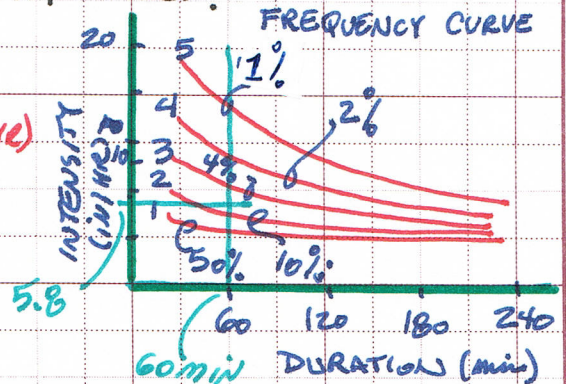 FREQUENCY CURVE
20
5
1%
4
2%
3
4%
10
2
1
50%
10%
INTENSITY
(in/HR)
5.8
60
120
180
240
60 min
DURATION (min)